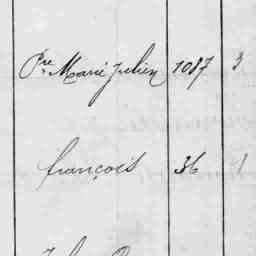 Pre Marie Julien 1087 3
françois 36 1